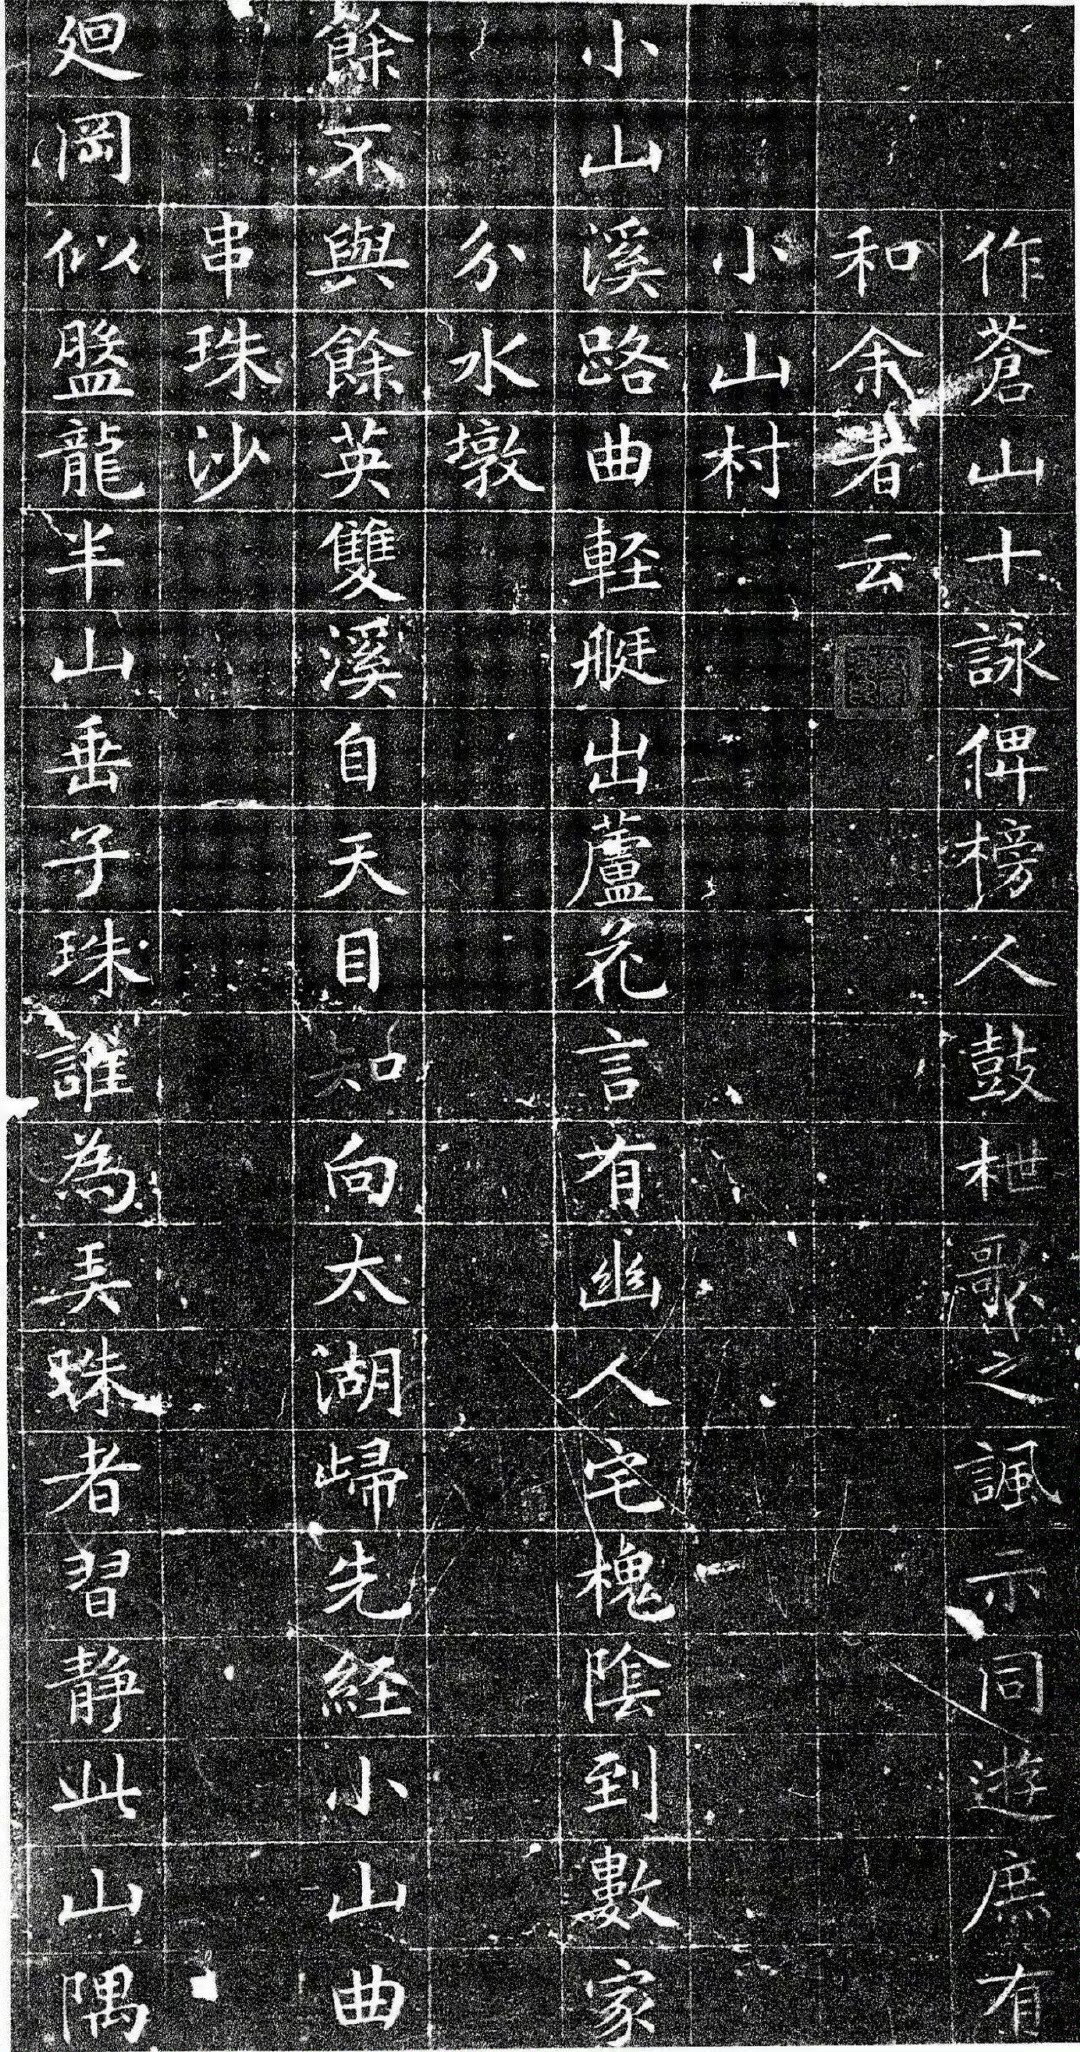 作蒼山十詠俾榜人鼓枻歌之諷示同遊庶有
和余者云
小山村
小山溪路曲軽艇出蘆花言有幽人宅槐陰到數家
分水墩
餘不與餘英雙溪自天目知向太湖歸先経小山曲
串珠沙
廻岡似盤龍半山垂子珠誰為弄珠者習静此山隅